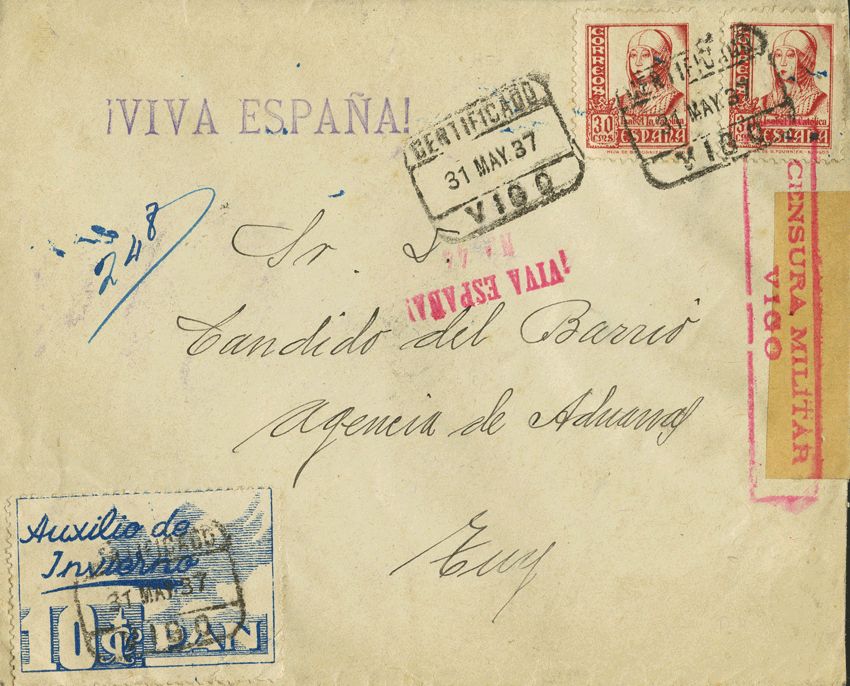 CORREOS
30 CMS
Isabel la Católica
ESPAÑA
CORREOS
30 CMS
Isabel la Católica
ESPAÑA
¡VIVA ESPAÑA!
CERTIFICADO
31 MAY. 37
VIGO
CERTIFICADO
MAY. 37
VIGO
248
Sr. D.
¡VIVA ESPAÑA!
Candido del Barrio
Agencia de Aduanas
Tuy
CENSURA MILITAR
VIGO
Auxilio de
Invierno
10 cts PAN
CERTIFICADO
31 MAY. 37
VIGO